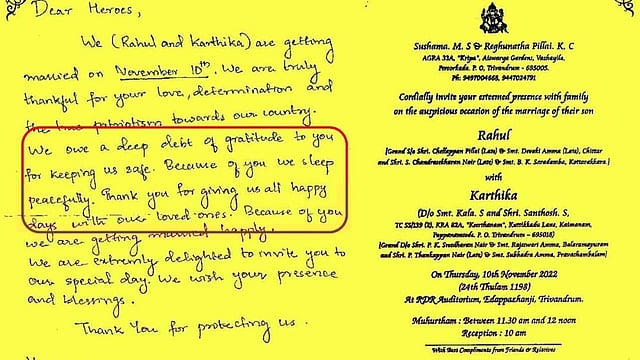 Dear Heroes,
We (Rahul and Karthika) are getting
married on November 10th. We are truly
thankful for your love, determination and
the true patriotism towards our country.
We owe a deep debt of gratitude to you
for keeping us safe. Because of you we sleep
peacefully. Thank you for giving us all happy
days with our loved ones. Because of you
we are getting married happily.
We are extremely delighted to invite you to
our special day. We wish your presence
and blessings.
Thank You for protecting us.
Sushama. M. S & Reghunatha Pillai. K. C
AGRA 33A, "Kripa", Aiswarya Gardens, Vazhayila,
Peroorkada. P. O, Trivandrum - 695005.
Ph: 9497004668, 9447024791
Cordially invite your esteemed presence with family
on the auspicious occasion of the marriage of their son
Rahul
[Grand S/o Shri. Chellappan Pillai (Late) & Smt. Devaki Amma (Late), Chittar
and Shri. S. Chandrasekharan Nair (Late) & Smt. B. K. Saradamba, Kottarakkara]
with
Karthika
(D/o Smt. Kala. S and Shri. Santhosh. S,
TC 53/139 (3), KRA 82A, "Keerthanam", Kattikkada Lane, Kaimanam,
Pappanamcode. P. O, Trivandrum - 695018)
[Grand D/o Shri. P. K. Sreedharan Nair & Smt. Rajeswari Amma, Balaramapuram
and Shri. P. Thankappan Nair (Late) & Smt. Subhadra Amma, Pravachambalam]
On Thursday, 10th November 2022
(24th Thulam 1198)
At RDR Auditorium, Edappazhanji, Trivandrum.
Muhurtham : Between 11.30 am and 12 noon
Reception : 10 am
With Best Compliments from Friends & Relatives